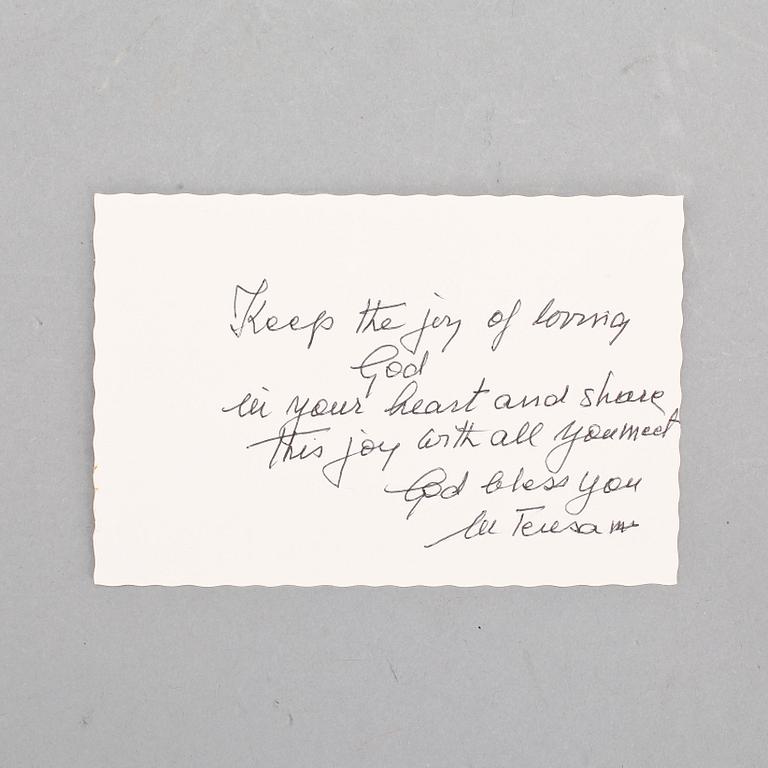 Keep the joy of loving
God
in your heart and share
this joy with all you meet
God bless you
M Teresa mc